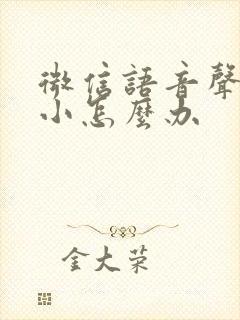 微信語音聲
小怎麼办
金大荣